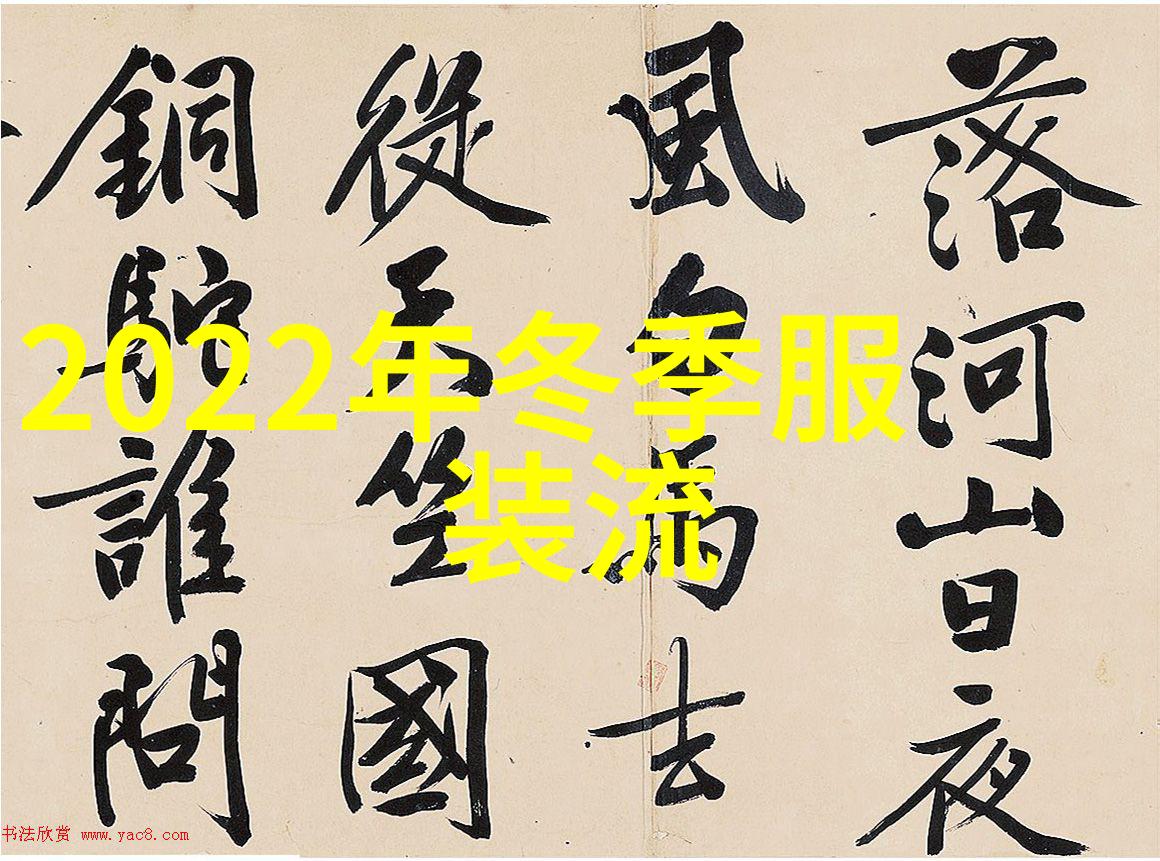 落河山日夜
風白馬去
從天竺國
銅駝誰問
2022年冬季服
装流
书法欣赏 www.yac8.com